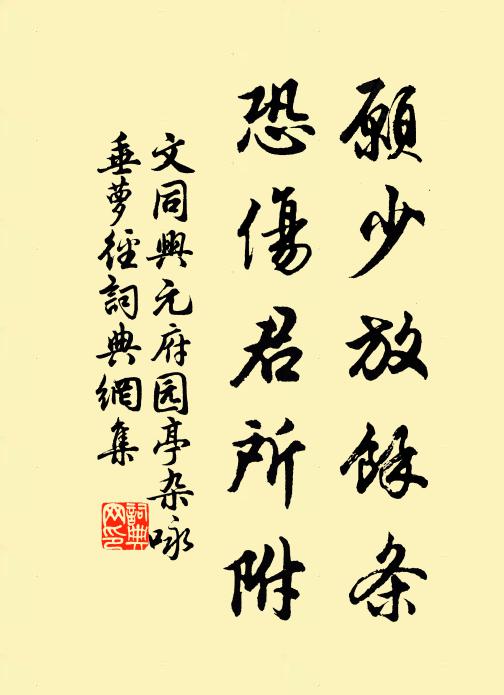 願少放餘条
恐傷君所附
文同興元府园亭杂咏
垂萝径詞典網集
詞典
网印